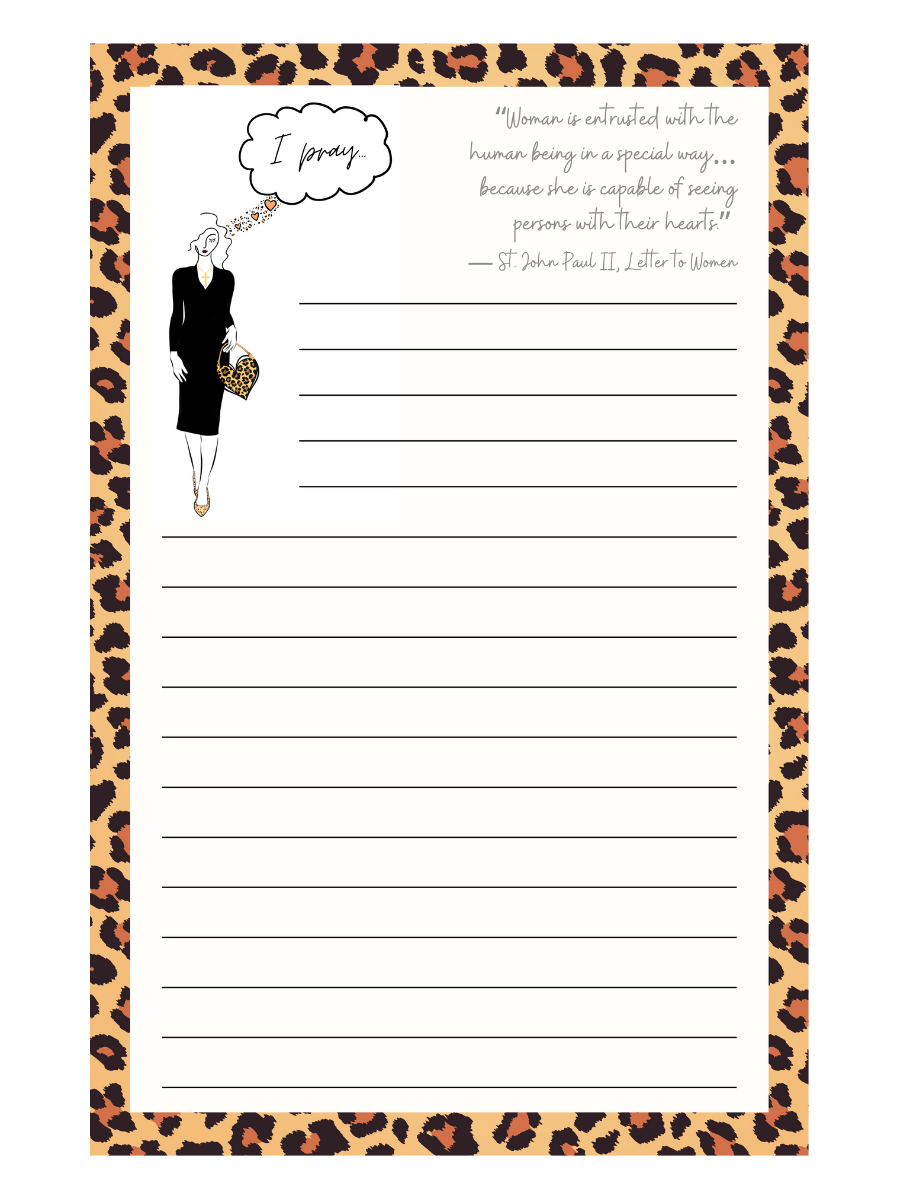 I pray...
“Woman is entrusted with the
human being in a special way...
because she is capable of seeing
persons with their hearts.”
— St. John Paul II, Letter to Women